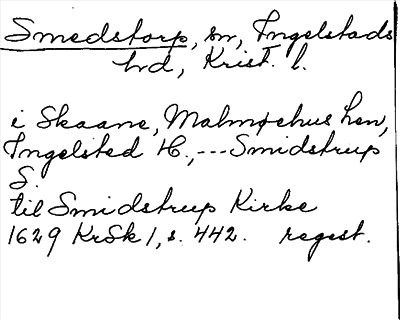 Smedstorp, sn, Ingelstads
hrd, Krist. l.
i Skaane, Malmøhus Len,
Ingelsted H., --- Smidstrup
S.
til Smidstrup Kirke
1629 KrSk 1, s. 442. regest.